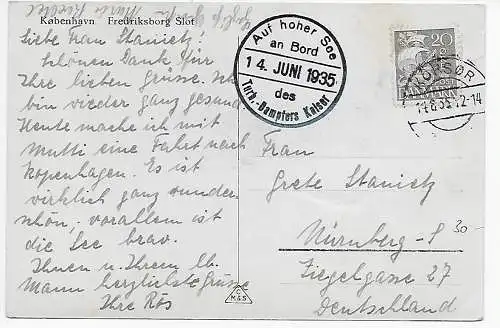 København Fredriksborg Slot
Liebe Frau Stanietz!
Schönen Dank für
Ihre lieben Grüsse. Ich
bin wieder ganz gesund.
Heute mache ich mit
Mutti eine Fahrt nach
Kopenhagen. Es ist
wirklich ganz wunder
schön, vorallem ist
die See brav.
Ihnen u. Ihrem lb.
Mann herzlichste Grüsse
Ihre Rös
Auf hoher See
an Bord
14. JUNI 1935
des
Turb.-Dampfers Kaiser
20
DANMARK
KORSØR
12-14
Frau
Grete Stanietz
Nürnberg-S
Ziegelgasse 27
Deutschland
30-
M&S